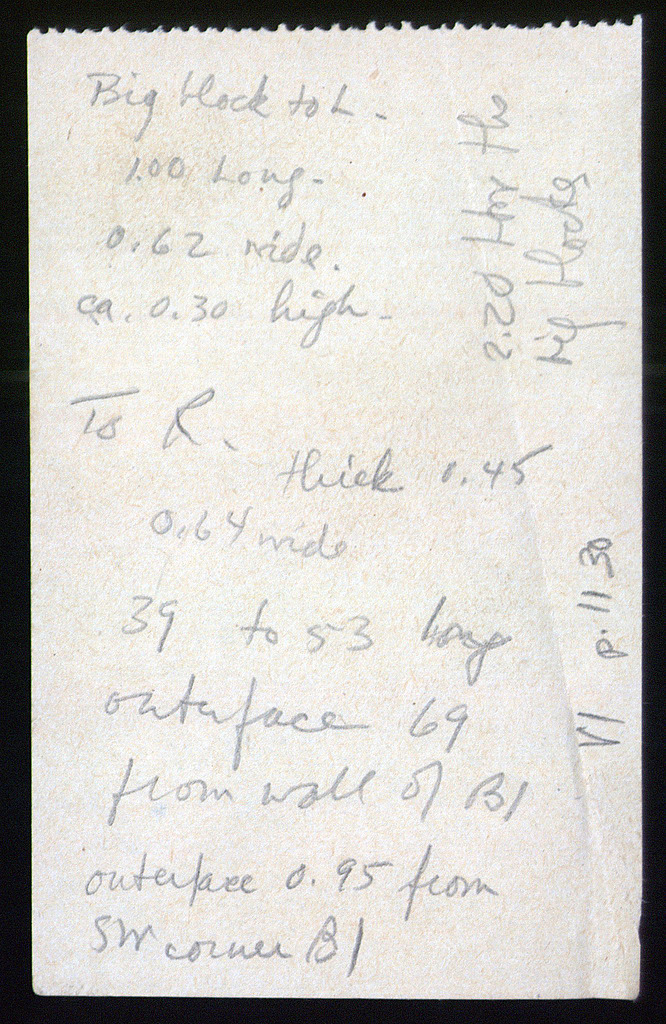 Big block to L.
1.00 Long.
0.62 wide.
ca. 0.30 high.
To R.
thick 0.45
0.64 wide
39 to 53 long
outerface 69
from wall of B1
outerface 0.95 from
SW corner B1
2.20 for the
big blocks
VI p. 1130